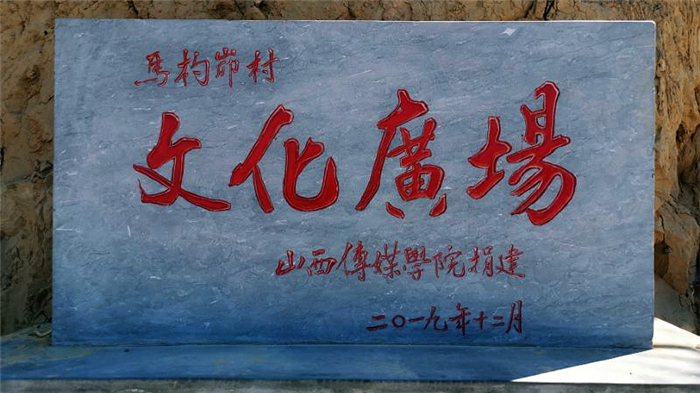 馬杓峁村
文化廣場
山西傳媒學院捐建
二〇一九年十二月